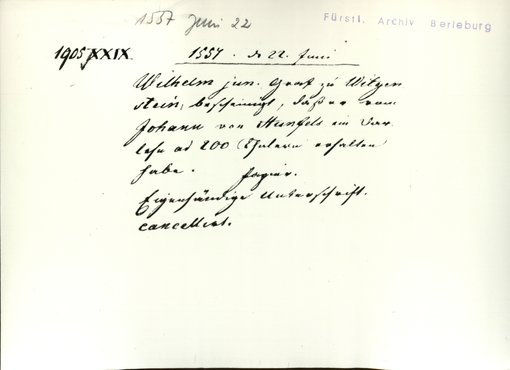 1557 Juni 22
Fürstl. Archiv Berleburg
1905 XXIX.
1557. de 22. Juni
Wilhelm jun. Graf zu Witgen
stein, bescheinigt, daß er von
Johann von Hanfels ein Dar
lehn ad 200 Thalern erhalten
habe. Papier.
Eigenhändige Unterschrift.
cancellirt.